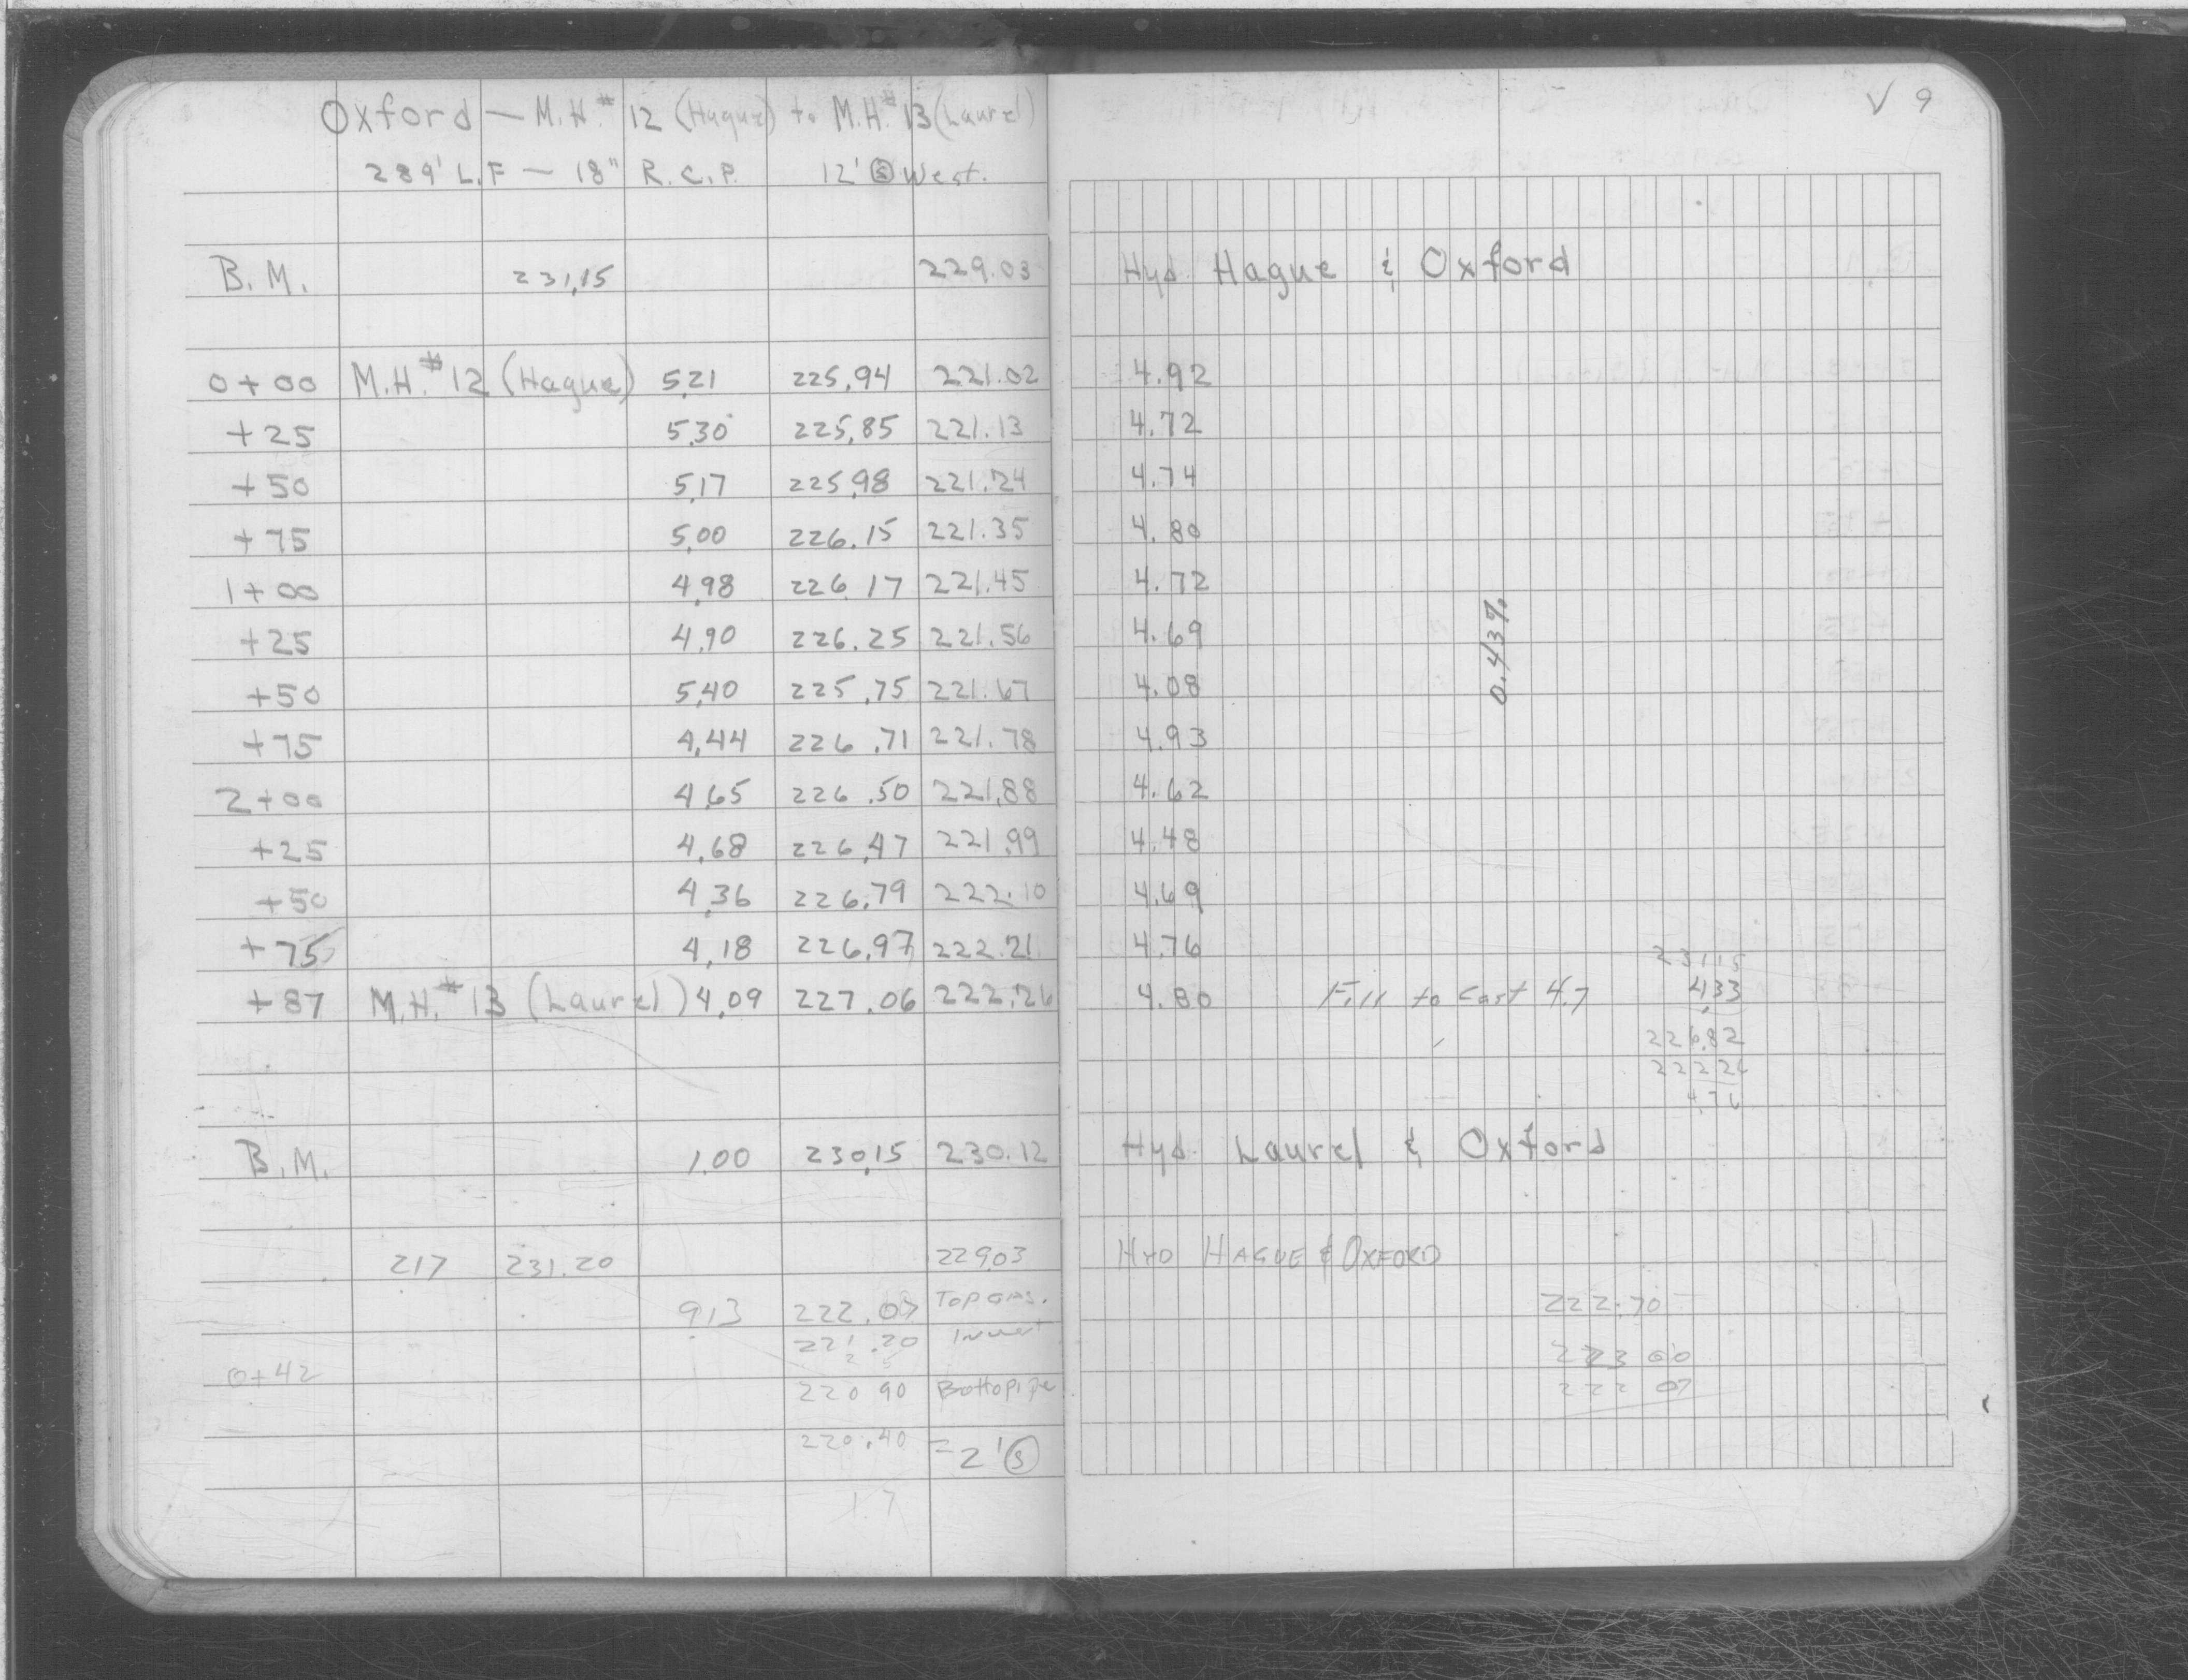 Oxford — M.H.# 12 (Hague) to M.H.# 13 (Laurel)
289' L.F — 18" R.C.P. 12' Ⓢ West.
√ 9
B.M. 231.15 229.03 Hyd. Hague & Oxford
0+00 M.H.# 12 (Hague) 5.21 225.94 221.02 4.92
+25 5.30 225.85 221.13 4.72
+50 5.17 225.98 221.24 4.74
+75 5.00 226.15 221.35 4.80
1+00 4.98 226.17 221.45 4.72
+25 4.90 226.25 221.56 4.69
0.43%
+50 5.40 225.75 221.67 4.08
+75 4.44 226.71 221.78 4.93
2+00 4.65 226.50 221.88 4.62
+25 4.68 226.47 221.99 4.48
+50 4.36 226.79 222.10 4.69
+75 4.18 226.97 222.21 4.76
231.15
+87 M.H.# 13 (Laurel) 4.09 227.06 222.26 4.80 Fill to Cast 4.7 4.33
226.82
222.26
B.M. 1.00 230.15 230.12 Hyd. Laurel & Oxford
217 231.20 229.03 HYD HAGUE & OXFORD
913 222.07 TOP 222.70
221.20 Invert
0+42 223 00
220 90 222 07
220.40 = 2' Ⓢ
1.7